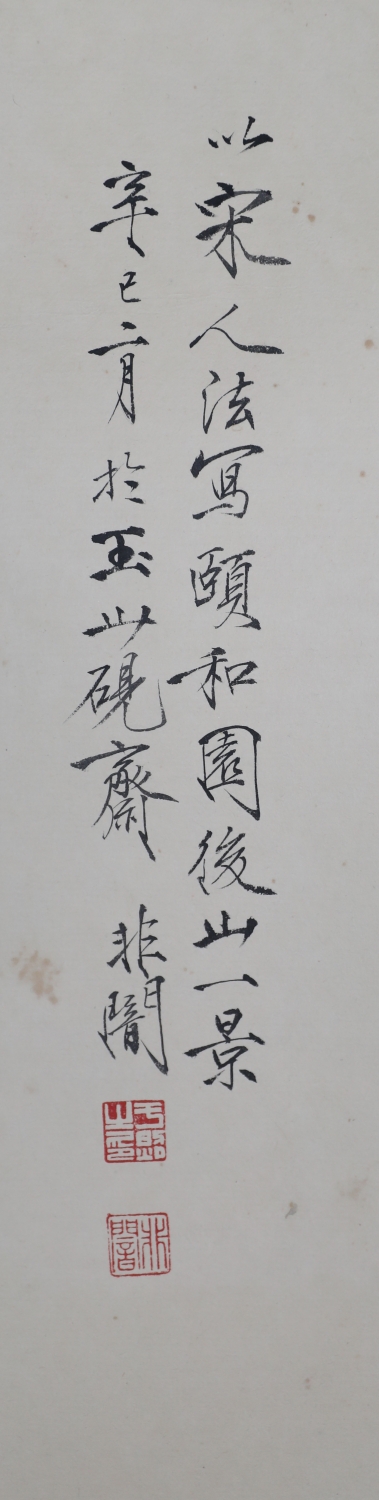 以宋人法寫頤和園後山一景
辛巳二月於玉山硯齋 非闇
于照之印
非闇